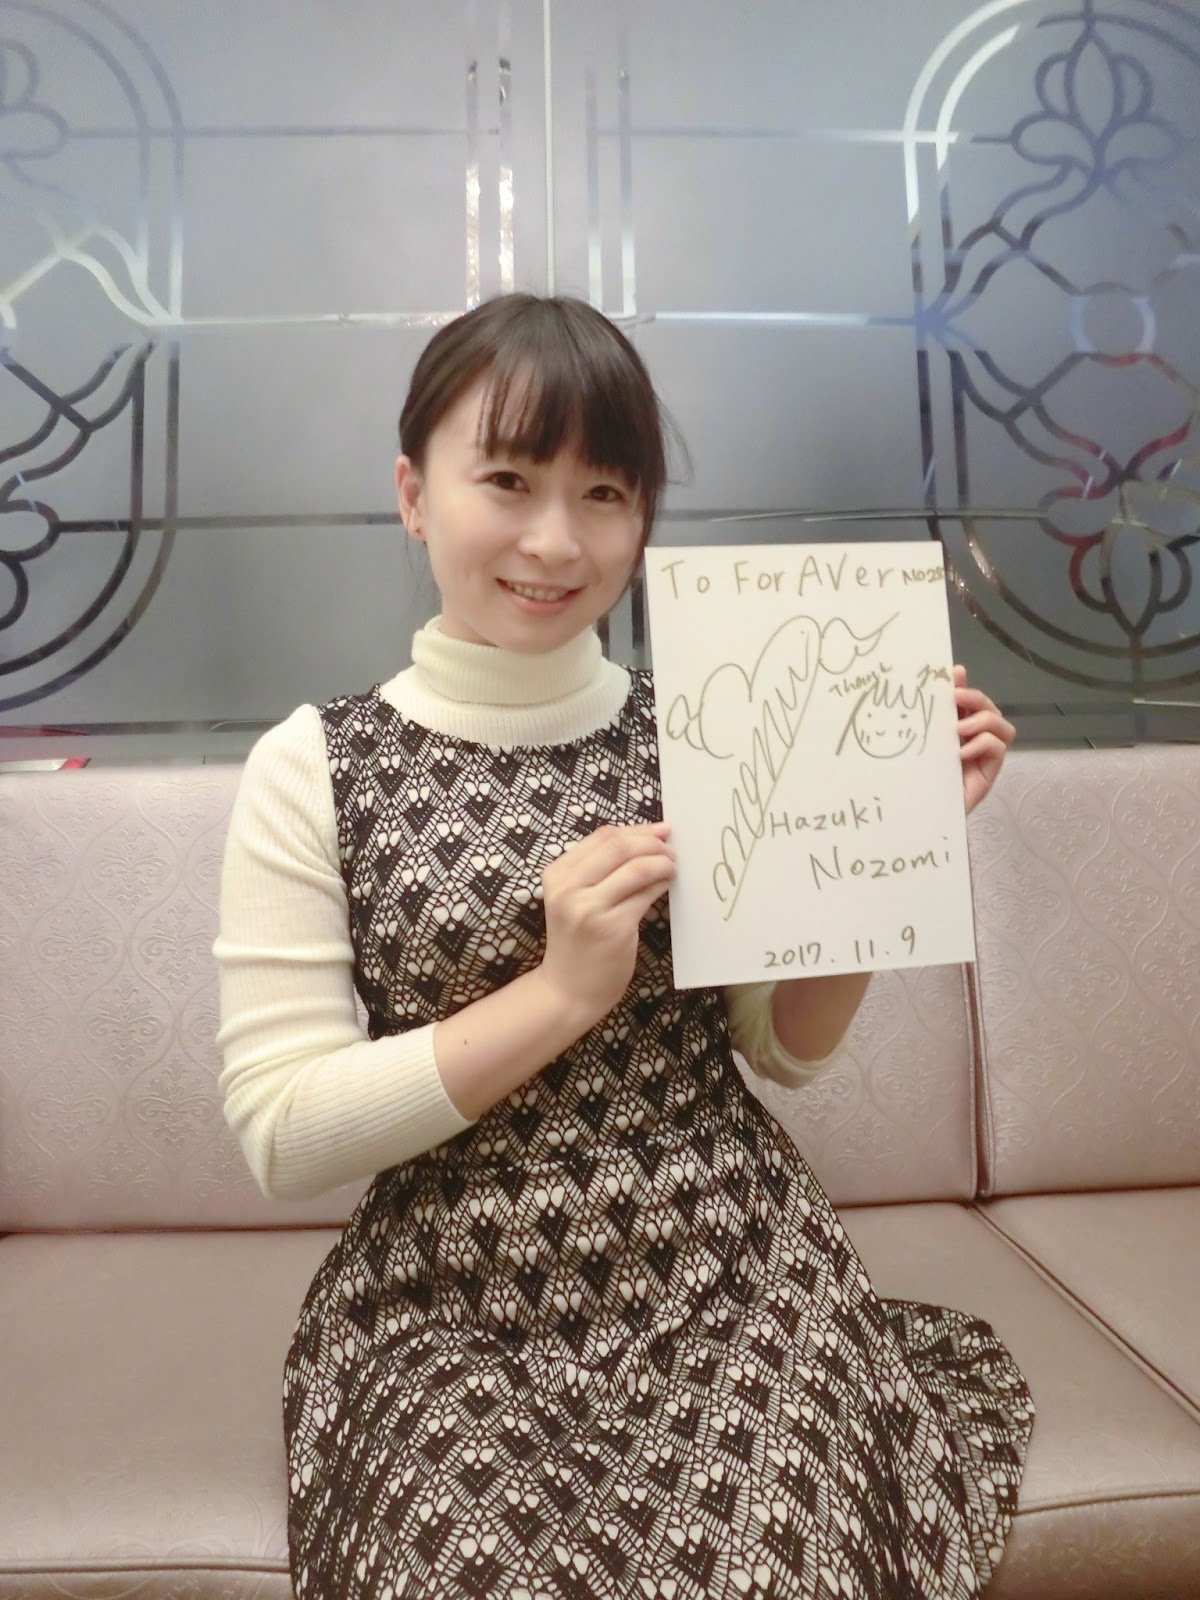 To For AVer
Thank
Hazuki
Nozomi
2017. 11. 9